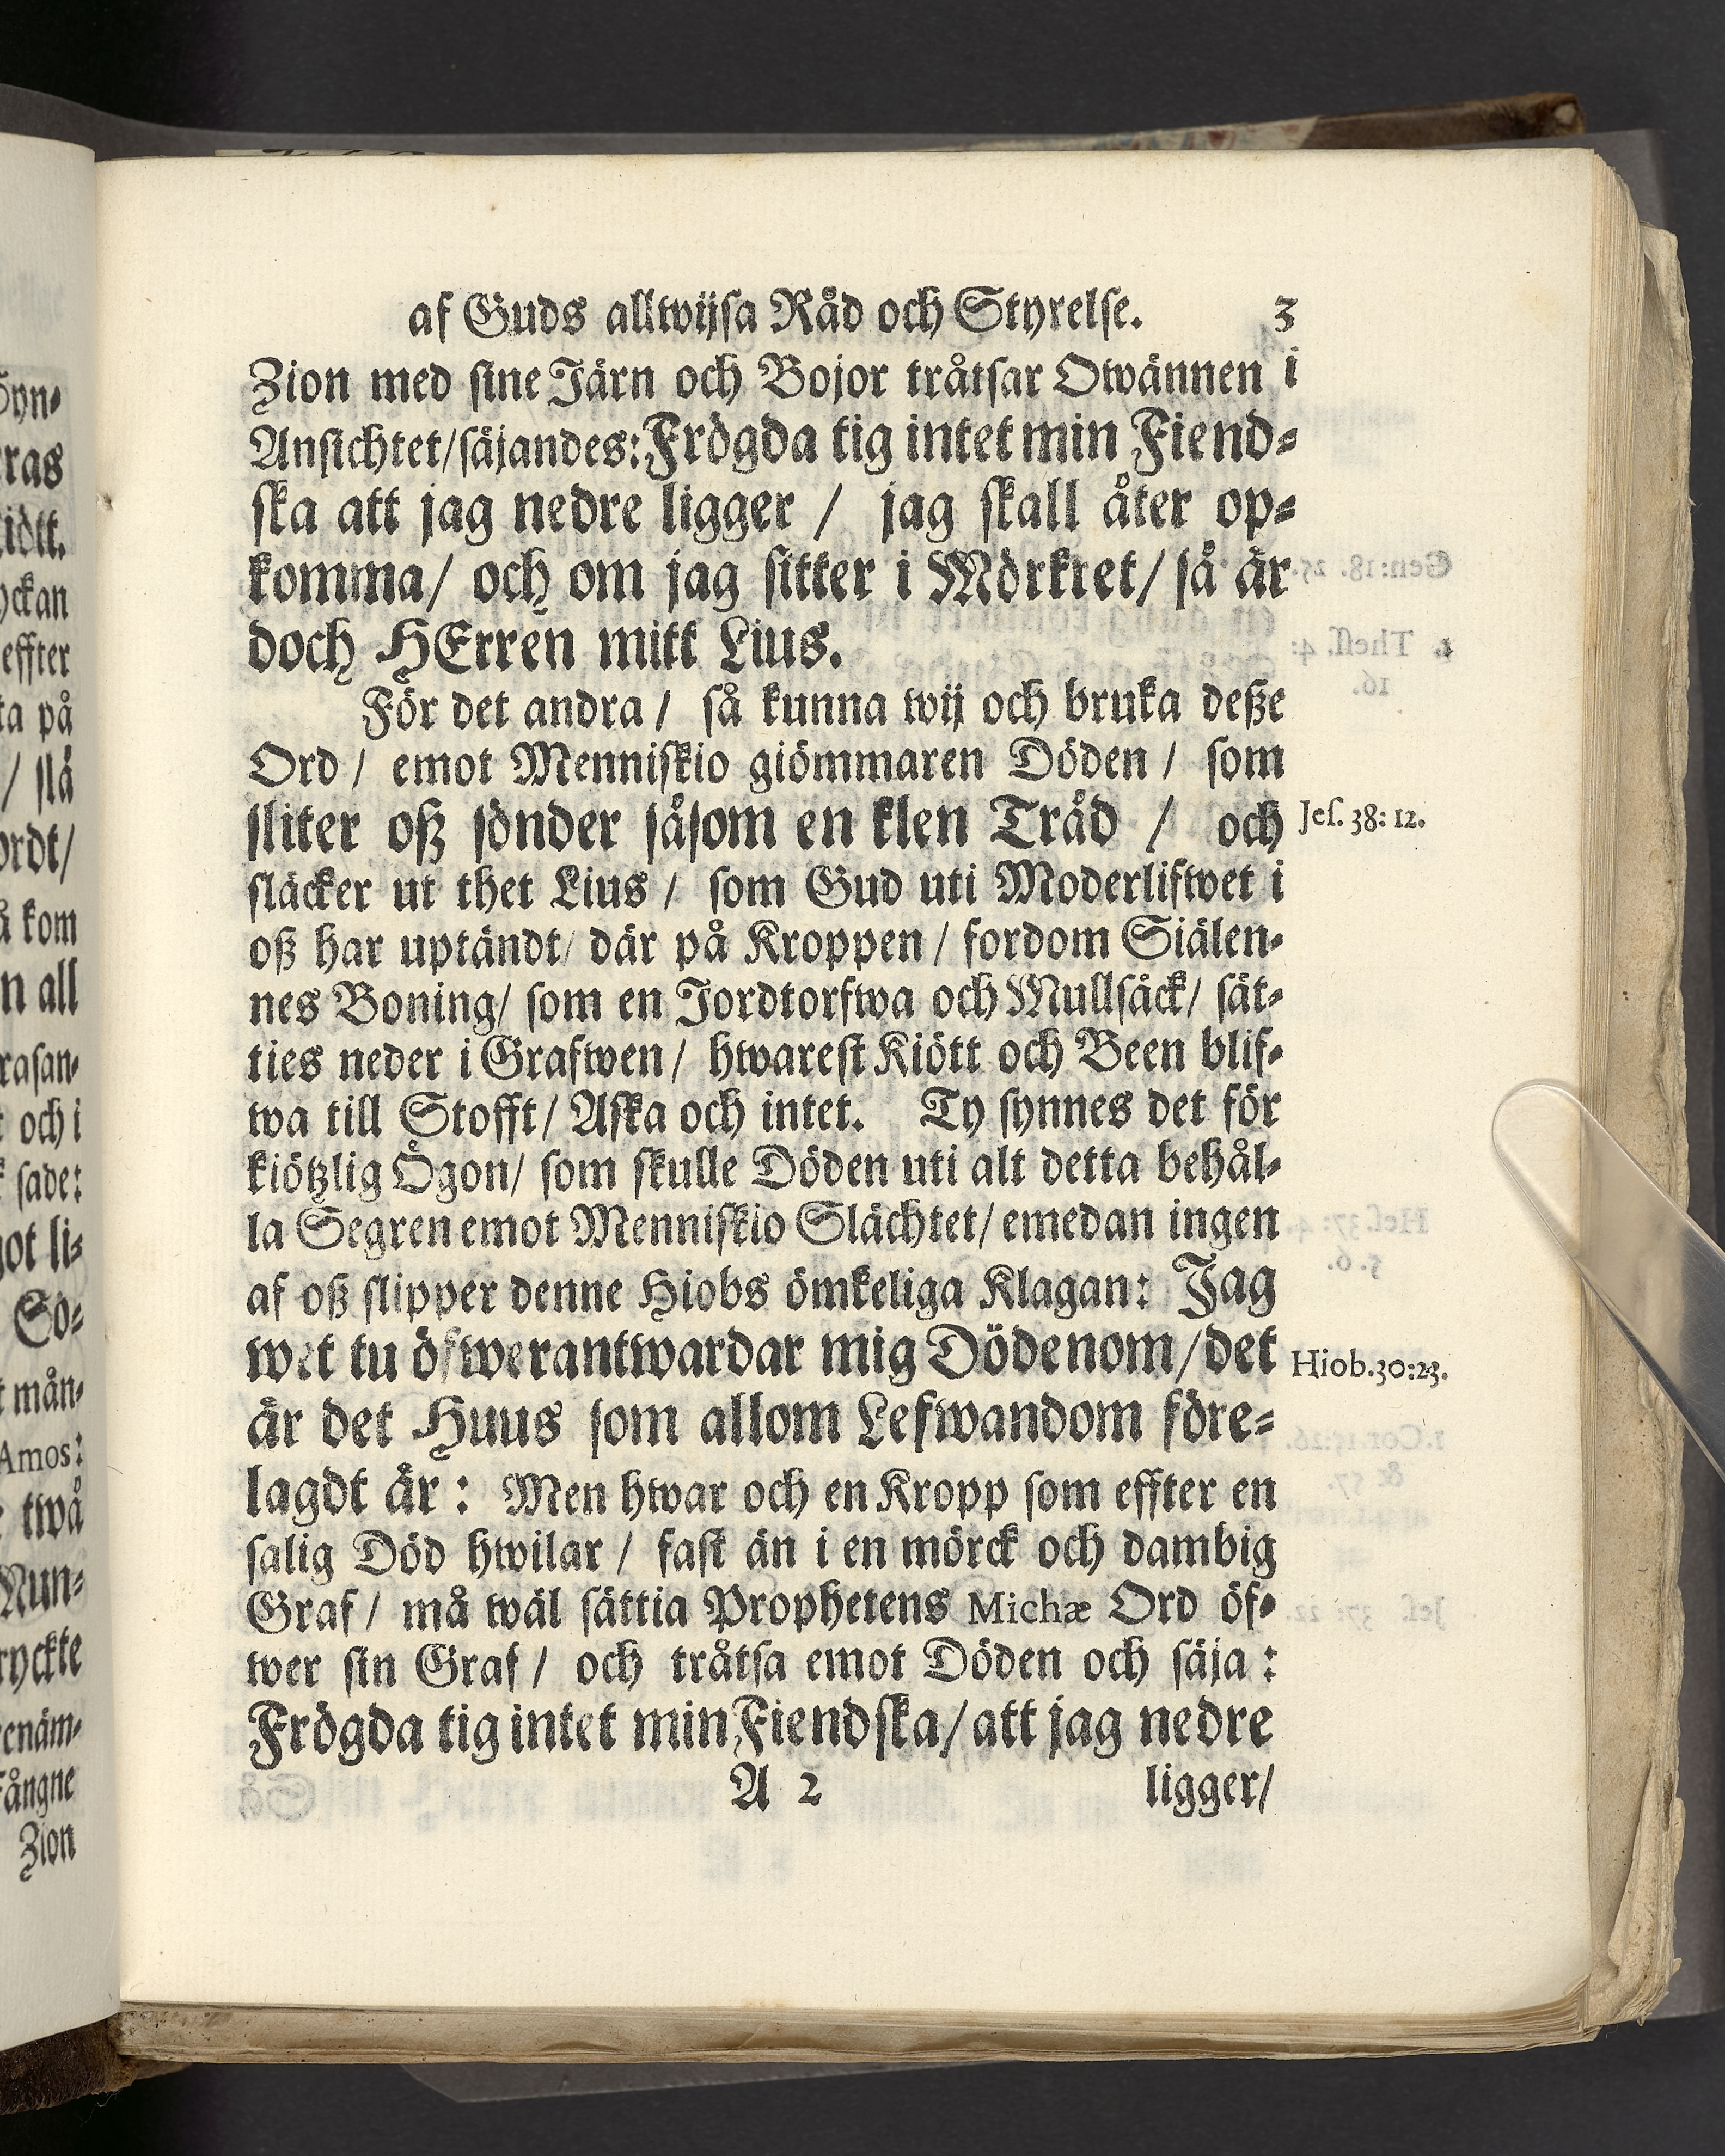 af Guds allwijsa Råd och Styrelse. 3
Zion med sine Järn och Bojor tråtsar Owännen i
Ansichtet/säjandes: Frögda tig intet min Fiend-
ska att jag nedre ligger / jag skall åter op-
komma/ och om jag sitter i Mörkret/ så är
doch HErren mitt Lius.
För det andra / så kunna wij och bruka deße
Ord / emot Menniskio giömmaren Döden / som
sliter oß sönder såsom en klen Tråd / och
Jes. 38: 12.
släcker ut thet Lius / som Gud uti Moderlifwet i
oß har uptändt/ där på Kroppen / fordom Siälen-
nes Boning/ som en Jordtorfwa och Mullsäck/ sät-
ties neder i Grafwen/ hwarest Kiött och Been blif-
wa till Stofft/ Aska och intet. Ty synnes det för
kiötzlig Ögon/ som skulle Döden uti alt detta behål-
la Segren emot Menniskio Slächtet/ emedan ingen
af oß slipper denne Hiobs ömkeliga Klagan: Jag
wet tu öfwerantwardar mig Dödenom/det
Hiob.30:23.
är det Huus som allom Lefwandom före-
lagdt är : Men hwar och en Kropp som effter en
salig Död hwilar / fast än i en mörck och dambig
Graf / må wäl sättia Prophetens Michæ Ord öf-
wer sin Graf / och tråtsa emot Döden och säja :
Frögda tig intet min Fiendska/ att jag nedre
A 2 ligger/